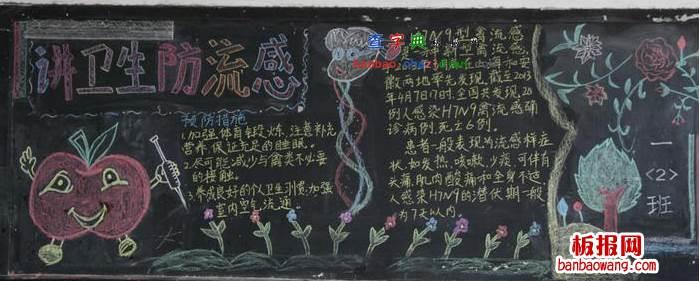 讲卫生防流感
预防措施
1.加强体育锻炼,注意补充
营养,保证充足的睡眠。
2.尽可能减少与禽类不必要
的接触。
3.养成良好的个人卫生习惯,加强
室内空气流通。
查字典
H7N9型禽流感
型禽流感,
出海和安
徽两地率先发现,截至2013
年4月7日17时,全国共发现20
例人感染H7N9禽流感确
诊病例,死亡6例。
患者一般表现为流感样症
状,如发热,咳嗽,少痰,可伴有
头痛,肌肉酸痛和全身不适
人感染H7N9的潜伏期一般
为7天以内。
一
<2>
班
板报网
banbaowang.com